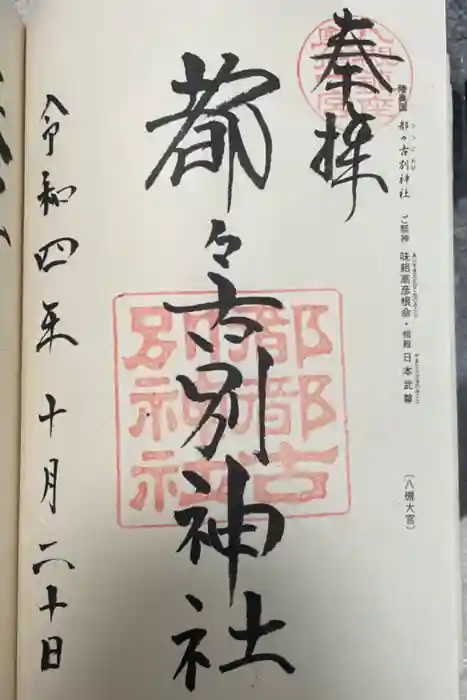 奉拝
陸奥国 都々古別神社 ご祭神 味耜高彦根命・相殿 日本武尊 (八槻大宮)
都々古別神社
都都古別神社
令和四年十月二十日